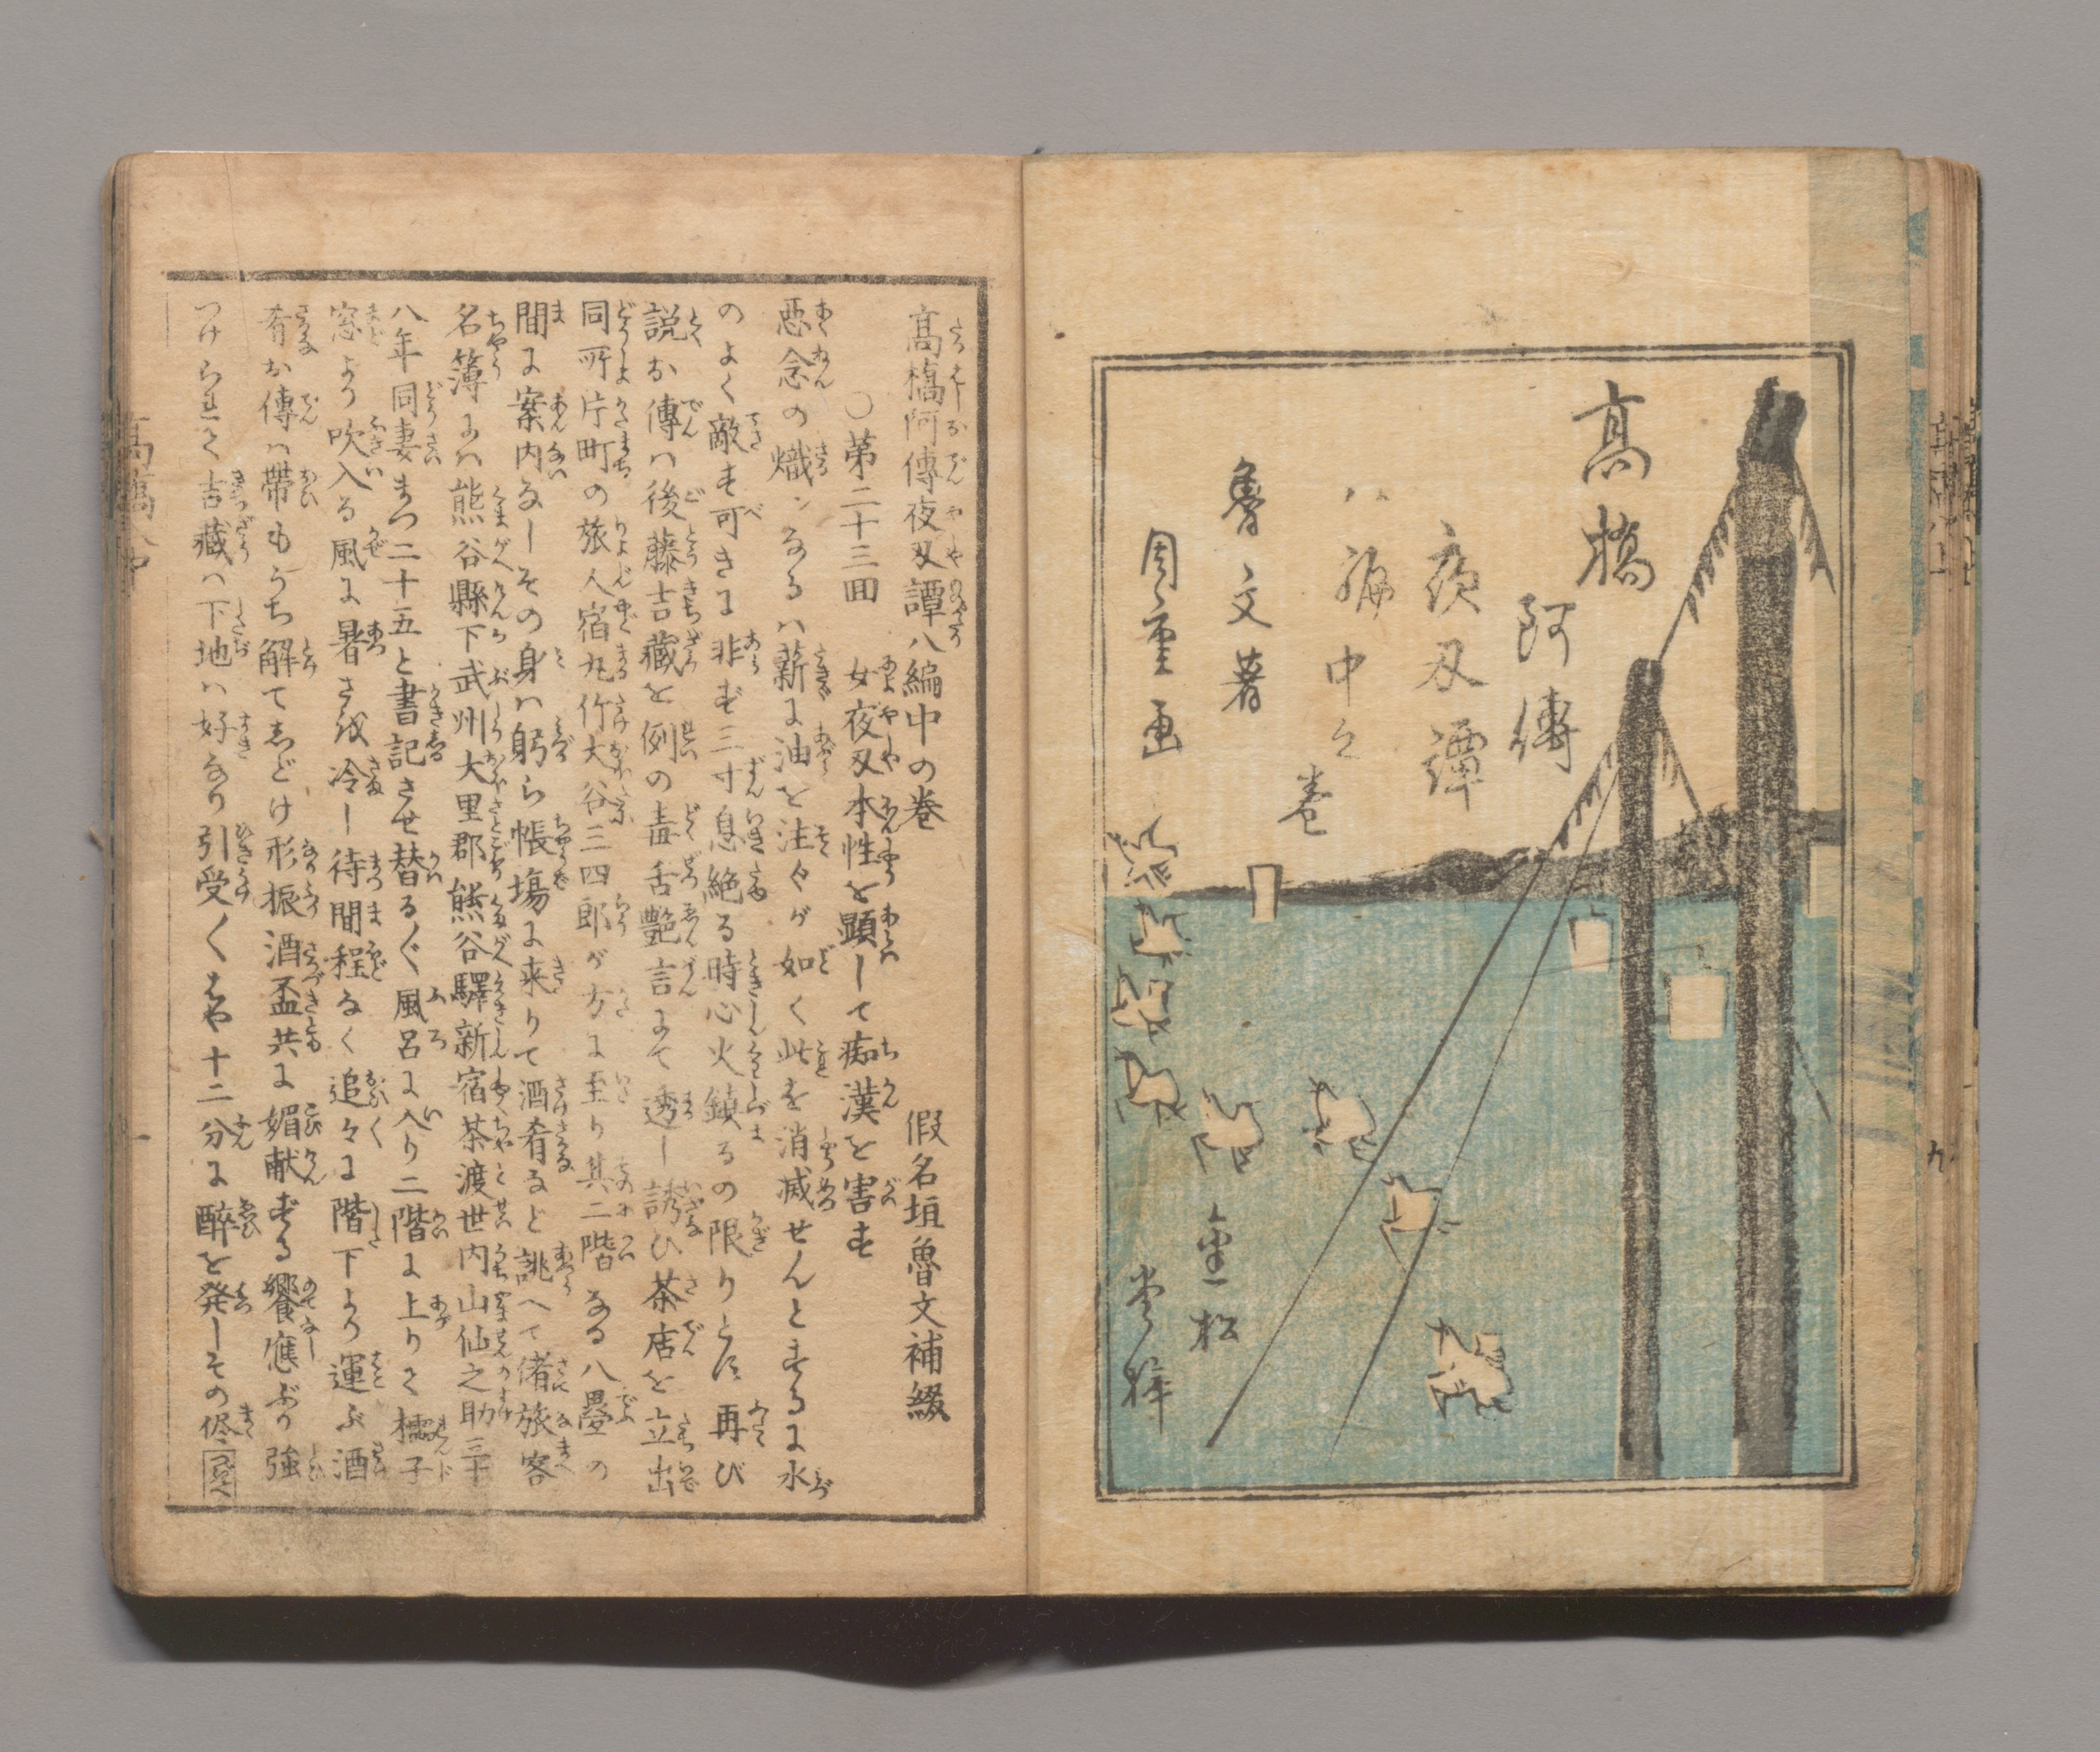 高橋
阿傳
夜刄譚
八編中之
巻
魯文著
周重画
金松
堂梓
高橋阿傳夜刄譚八編中の巻　假名垣魯文補綴
○第二十三回　女夜刄本性を顕して痴漢を害す
悪念の熾ンなるハ薪に油を注ぐが如く此を消滅せんとするに水
のよく敵す可きに非ず三寸息絶る時心火鎮るの限りとぞ再び
説お傳ハ後藤吉藏を例の毒舌艶言にて透し誘ひ茶店を立出
同所片町の旅人宿丸竹大谷三四郎が方に至り其二階なる八疊の
間に案内なしその身ハ躬ら帳塲に来りて酒肴など誂へて偖旅客
名簿にハ熊谷縣下武州大里郡熊谷驛新宿茶渡世内山仙之助三十
八年同妻まつ二十五と書記させ替る〲風呂に入り二階に上りて襦子
窓より吹入る風に暑さを冷し待間程なく追々に階下より運ぶ酒
肴お傳ハ帶もうち解てしどけ形振酒盃共に媚献ずる饗應ぶり強
つけられて吉藏ハ下地ハ好なり引受〱はや十二分に醉を発しその侭
つぎへ
高橋八中
一
九